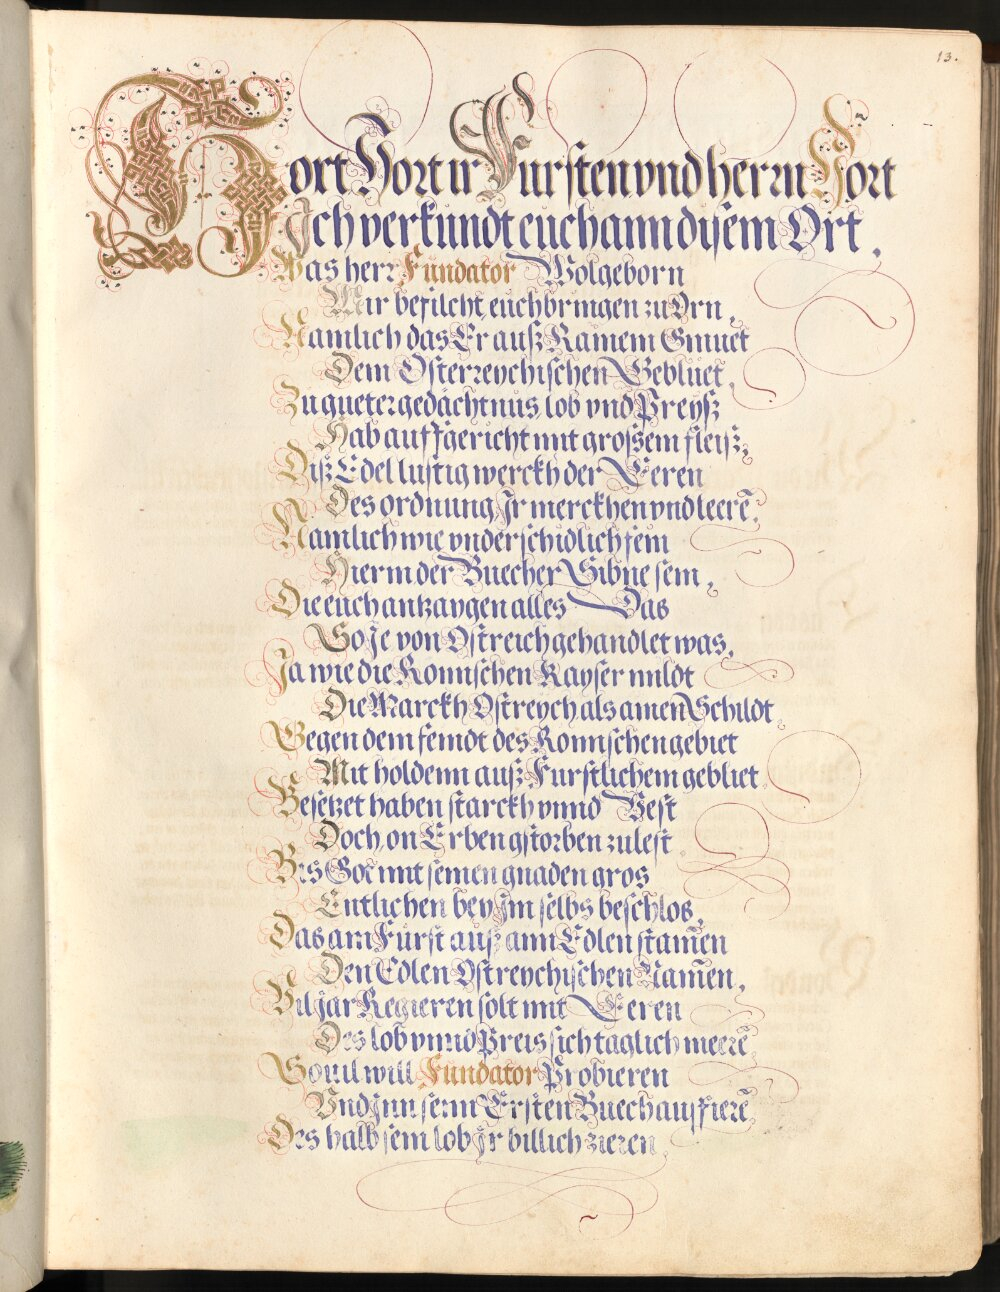 13.
Hort Hort ir Fursten vnd herrn Hort
Ich verkundt euch ann disem Ort.
Was herr Fundator Wolgeborn
Mir befilcht, euch bringen zu Orn,
Namlich das Er auß Rainem Gmuet
Dem Österreychischen Gebluet,
Zu gueter gedächtnus lob vnd Preyß
Hab auffgericht mit grossem fleiß,
Diß Edel lustig werckh der Eeren
Des ordnung Ir merckhen vnd leerē,
Namlich wie vnderschidlich sein
Hierin der Buecher Sibne sein,
Die euch anzaygen alles Das
So Je von Ostreich gehandlet was,
Ja wie die Romischen Kayser mildt
Die Marckh Ostreych als ainen Schildt
Gegen dem feindt des Romischen gebiet
Mit holdenn auß Furstlichem gebliet
Besetzet haben starckh vnnd Vest
Doch, on Erben gstorben zulest
Bis Got mit seinen gnaden gros
Entlichen bey Im selbs beschlos,
Das ain Furst auß ainn Edlen stamen
Den Edlen Ostreychischen Namen,
Vil Jar Regieren solt mit Eeren
Des lob vnnd Preis sich taglich meerē
Souil will Fundator Probieren
Vnd Inn seinn Ersten Buech ausfierē
Des halb sein lob Ir billich zieren,